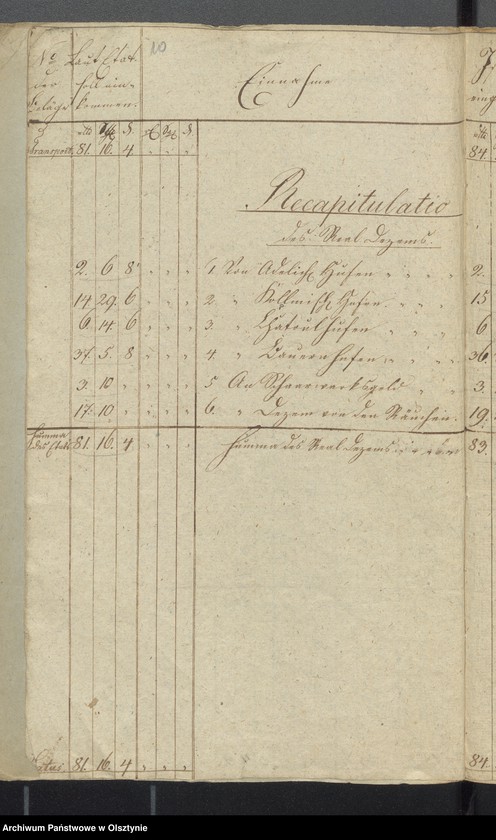 10
No Laut Etat
der soll ein-
Beläge kommen.
Einnahme
rtl gl d.
Transport. 81. 16. 4 84
Recapitulatio
des Real Dezems.
2. 6 8 1 Von Adelich Hufen 2.
14 29. 6 2. " Köllmisch Hufen 15
6. 14 6 3. " Chatoulhufen 6
37. 5. 8 4 " Bauernhufen 36
3. 10 5 An Schaarwerksgeld 3.
17. 10 6. " Dezem von den 19.
Summa
des Etats 81. 16. 4 Summa des Real Dezems 83.
Latus. 81. 16. 4 84.
Archiwum Państwowe w Olsztynie